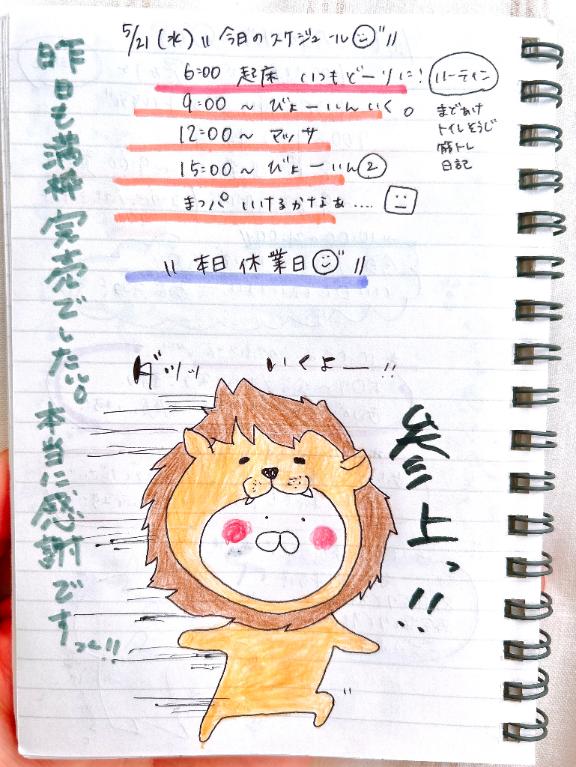 5/21(水) 〃今日のスケジュール〃
6:00 起床 いつもどーりに!
ルーティン
9:00～びょーいんいく。
まどあけ
トイレそうじ
筋トレ
日記
12:00～マッサ
15:00～びょーいん②
まつパ いけるかなぁ....
〃本日休業日〃
昨日も満枠完売でした。本当に感謝ですっ!!
ダッッ いくよー!!
参上っ!!